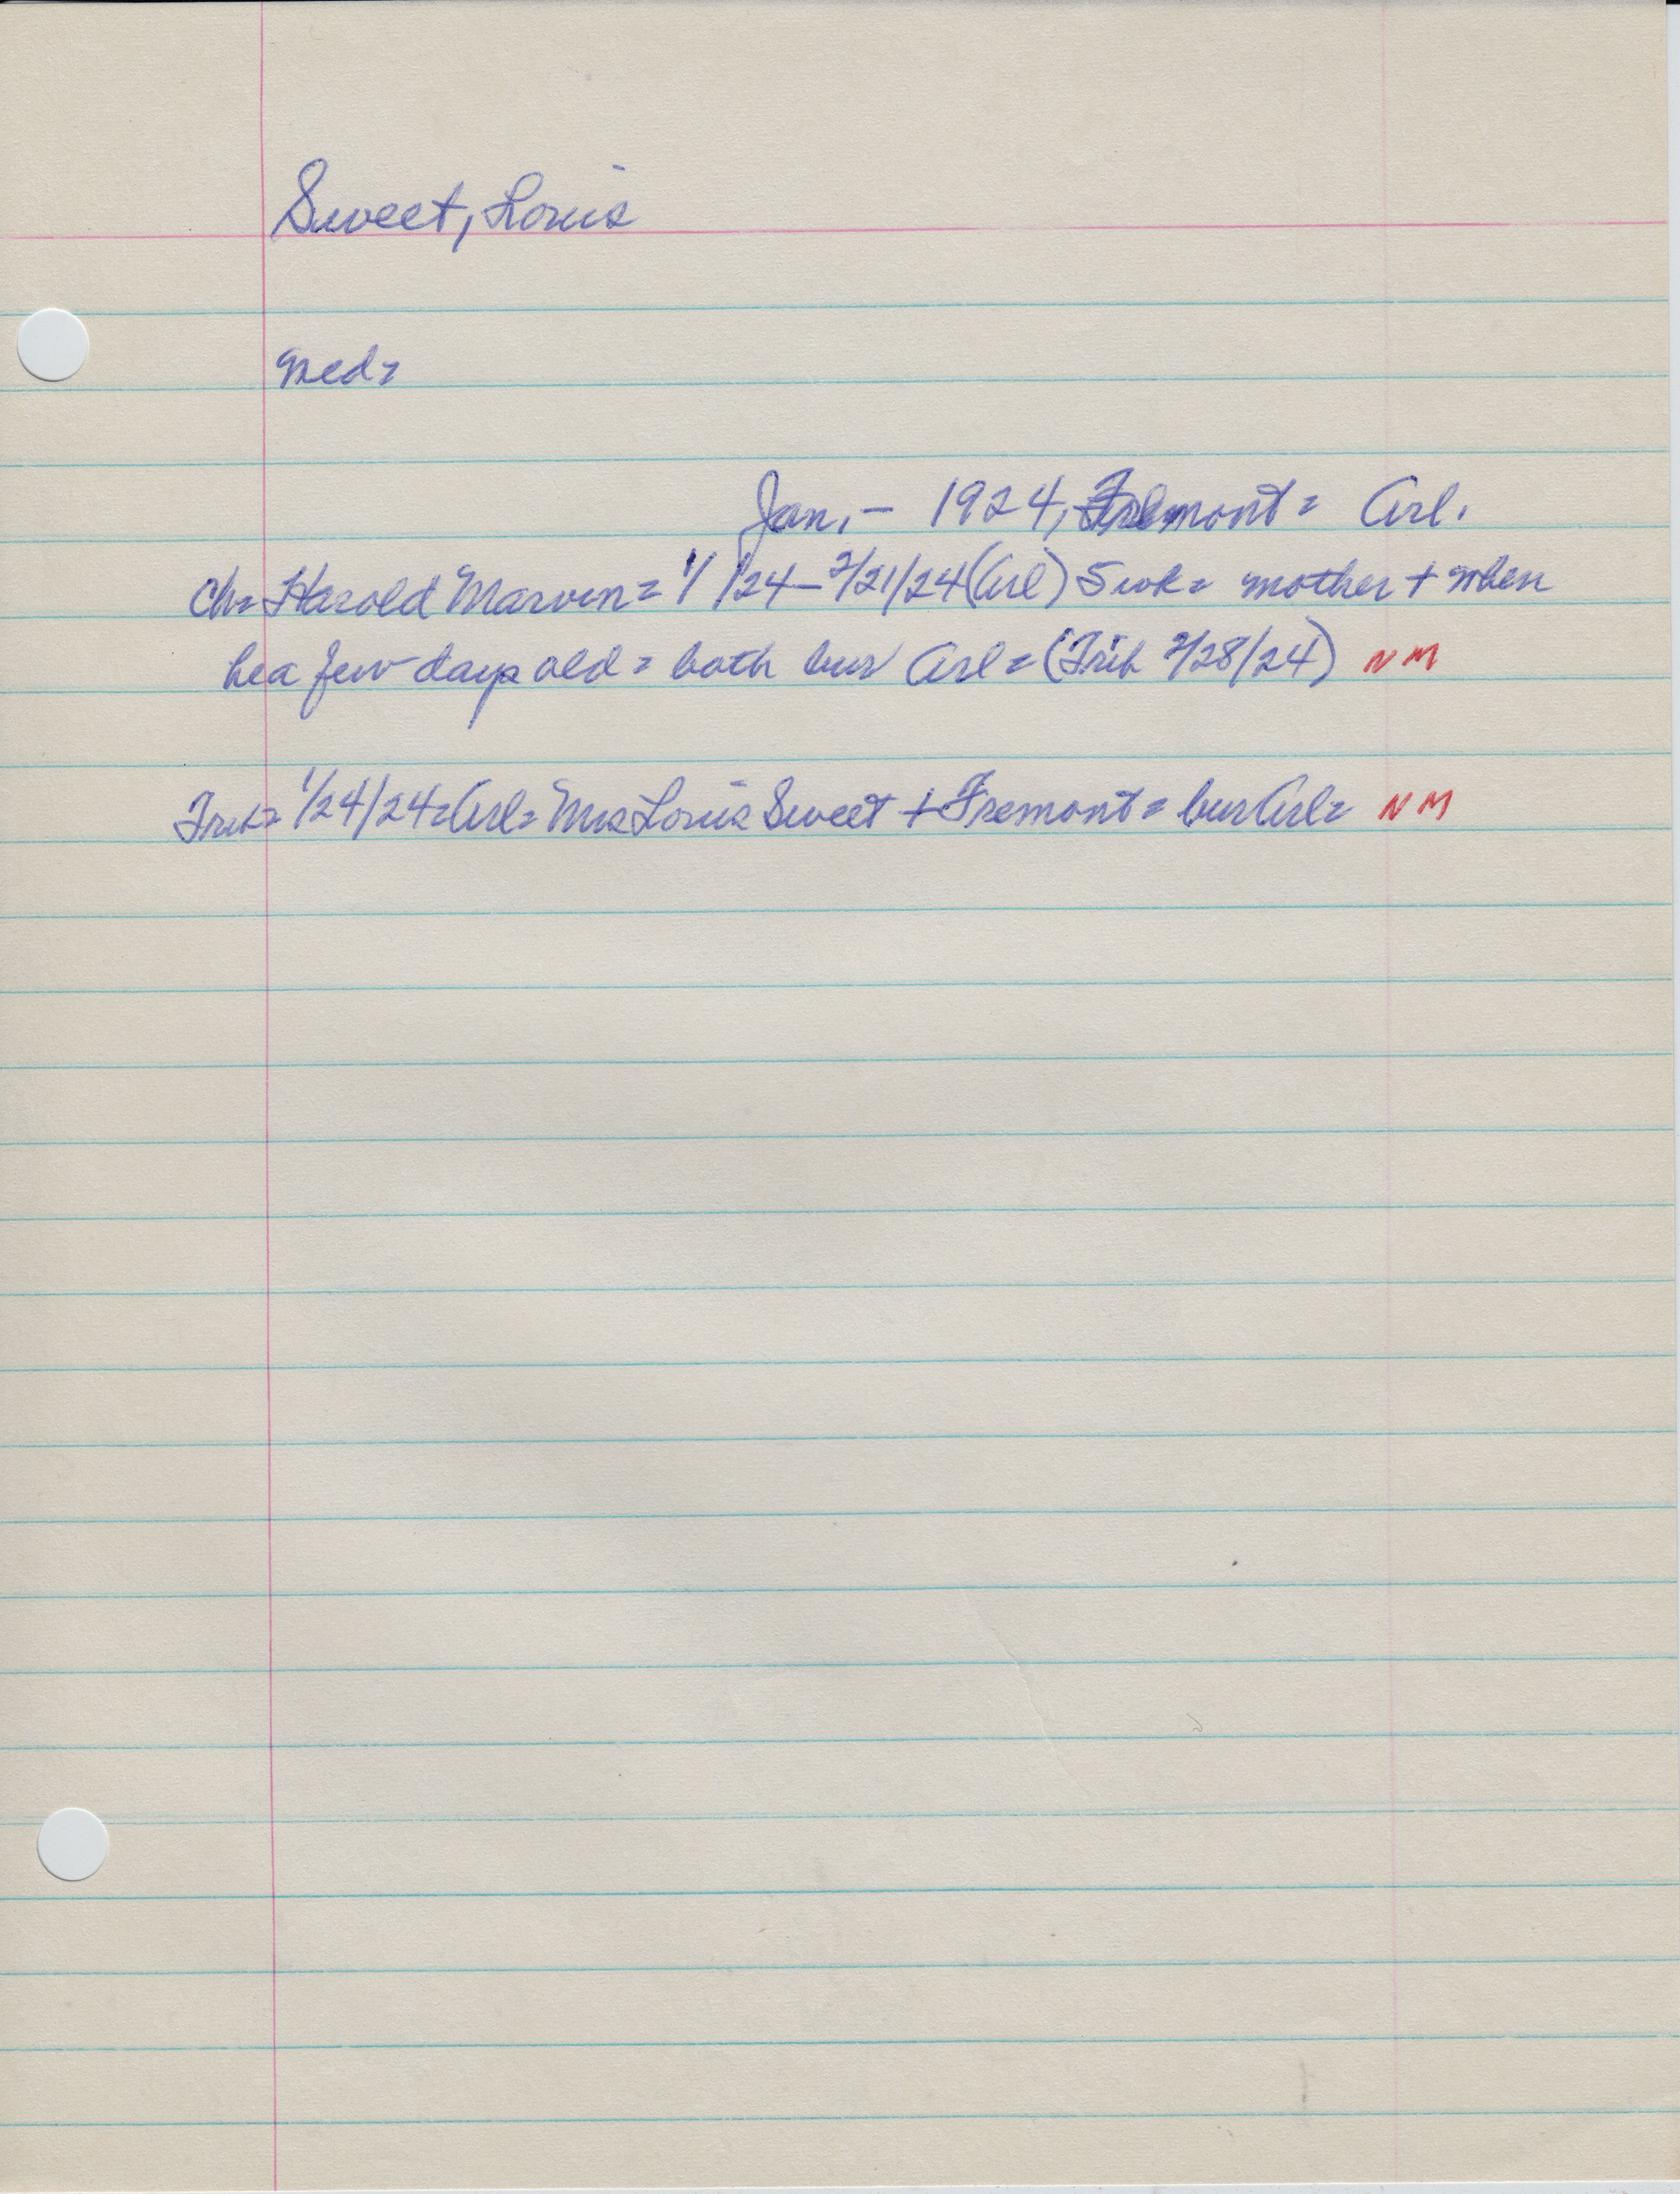 Sweet, Louis
Med=
Jan. - 1924, Fremont = Arl.
Ch= Harold Marvin = 1/ /24 - 2/21/24 (Arl) 5 wk = mother + when
he a few days old = both bur Arl = (Trib 2/28/24) NM
Trib = 1/24/24 = Arl = Mrs Louis Sweet + Fremont = bur Arl = NM